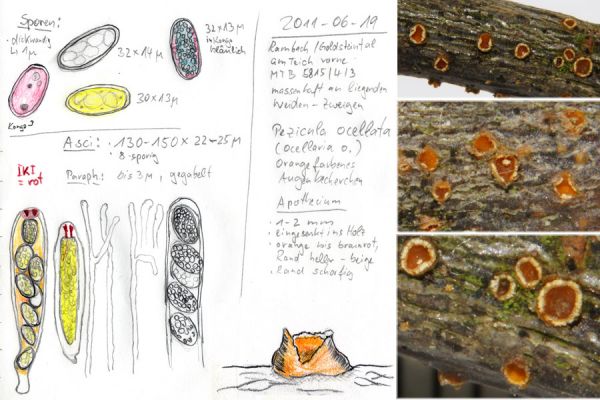 Sporen:
• dickwandig
↳ 1µ
32 × 14 µ
32 × 13 µ
in Kongo
bläulich
30 × 13 µ
Kongo
Asci: • 130-150 × 22-25µ
• 8-sporig
IKI
= rot
Paraph.: bis 3µ, gegabelt
2011-06-19
Rambach/Goldsteintal
am Teich vorne
MTB 5815/4/3
massenhaft an liegenden
Weiden-Zweigen
Pezicula ocellata
(Ocellaria o.)
Orangefarbenes
Augenbecherchen
Apothecium
• 1-2 mm
• eingesenkt ins Holz
• orange bis braunrot,
Rand heller - beige
• Rand schorfig